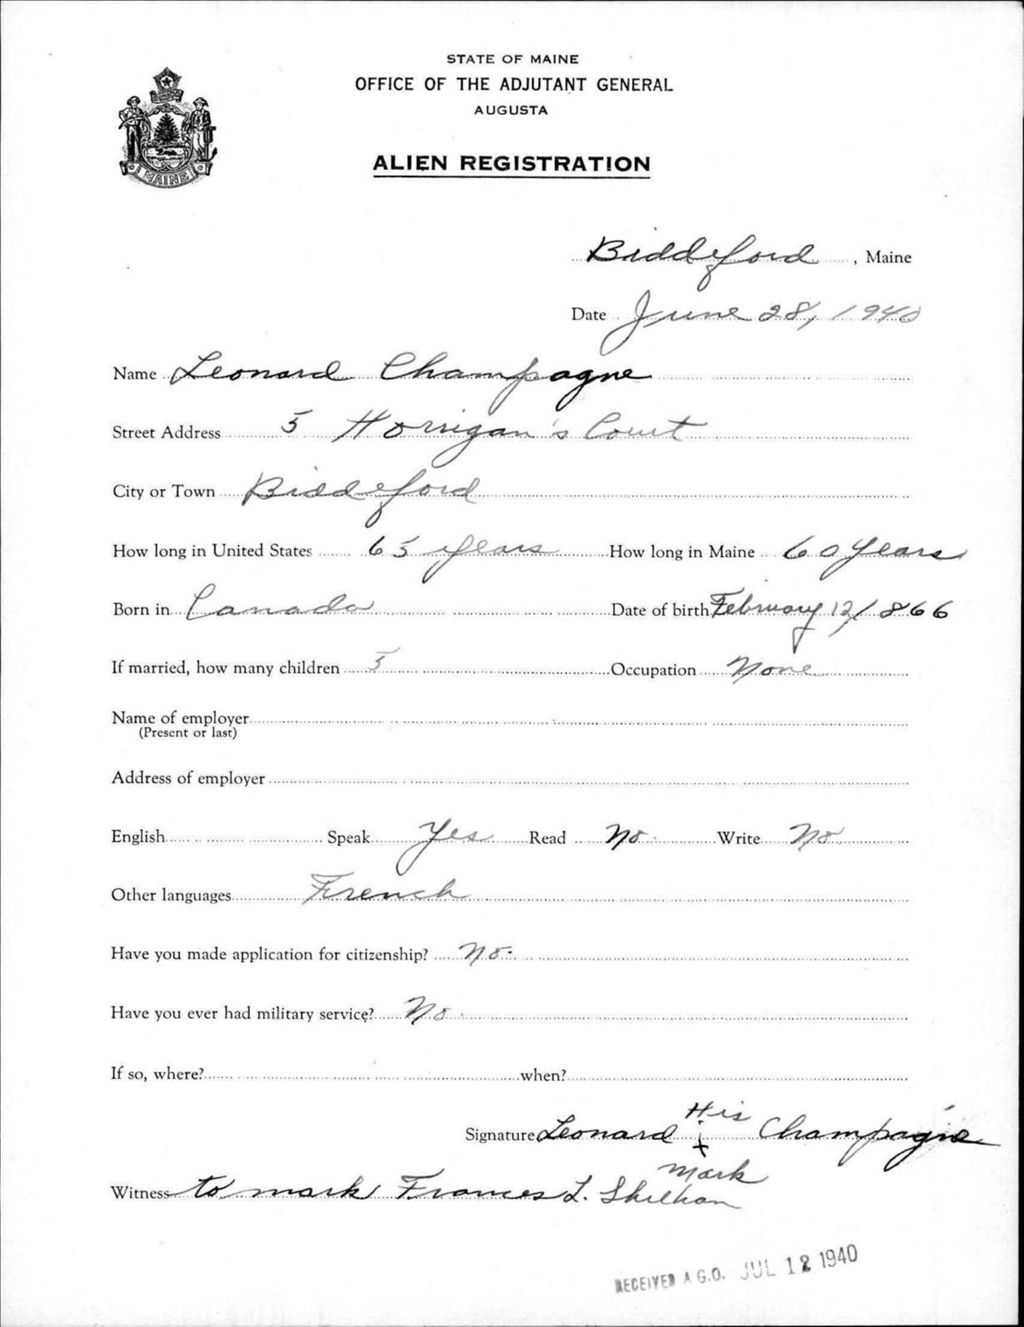 STATE OF MAINE
OFFICE OF THE ADJUTANT GENERAL
AUGUSTA
ALIEN REGISTRATION
MAINE
Biddeford, Maine
Date June 28, 1940
Name Leonard Champagne
Street Address 5 Horrigan's Court
City or Town Biddeford
How long in United States 65 years How long in Maine 60 years
Born in Canada Date of birth February 12, 1866
If married, how many children 5 Occupation None
Name of employer
(Present or last)
Address of employer
English Speak Yes Read No Write No
Other languages French
Have you made application for citizenship? No.
Have you ever had military service? No.
If so, where? when?
His
Signature Leonard x Champagne
Mark
Witness to mark Frances L.
RECEIVED A.G.O. JUL 12 1940